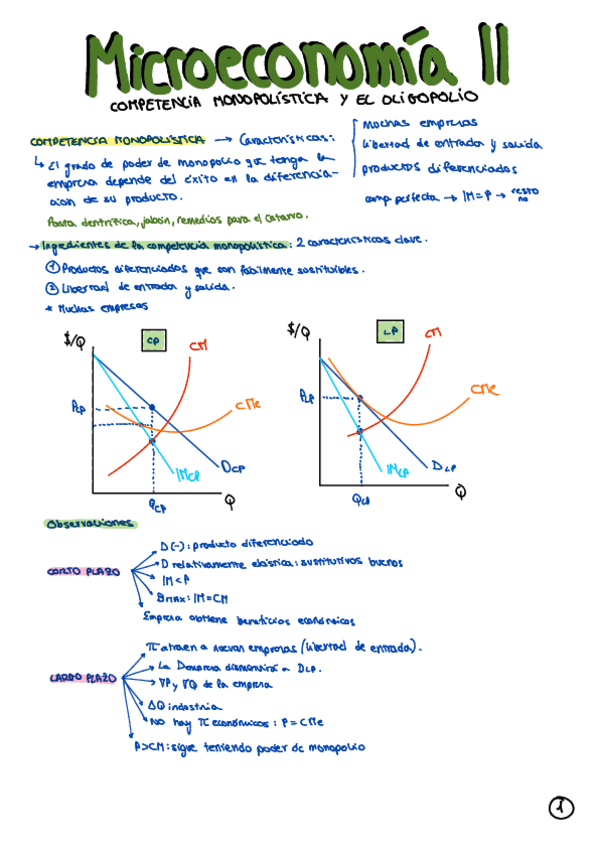 Microeconomía II
COMPETENCIA MONOPOLÍSTICA Y EL OLIGOPOLIO
COMPETENCIA MONOPOLÍSTICA → Características:
muchas empresas
libertad de entrada y salida
productos diferenciados
↳ El grado de poder de monopolio que tenga la
empresa depende del éxito en la diferencia-
ción de su producto.
comp perfecta → IM = P → resto no
Pasta dentrífica, jabón, remedios para el catarro.
→ Ingredientes de la competencia monopolística: 2 características clave.
① Productos diferenciados que son fácilmente sustituibles.
② Libertad de entrada y salida.
* Muchas empresas
$/Q
CP
CM
PCP
CMe
DCP
IMCP
QCP
Q
$/Q
LP
CM
PLP
CMe
DLP
IMLP
QLP
Q
Observaciones
CORTO PLAZO
D(-): producto diferenciado
D relativamente elástica: sustitutivos buenos
IM < P
Bmax: IM = CM
Empresa obtiene beneficios económicos
LARGO PLAZO
π atraen a nuevas empresas (libertad de entrada).
La Dempresa disminuirá a DLP.
∇P y ∇Q de la empresa
ΔQ industria
NO hay π económicos: P = CMe
P>CM: sigue teniendo poder de monopolio
1